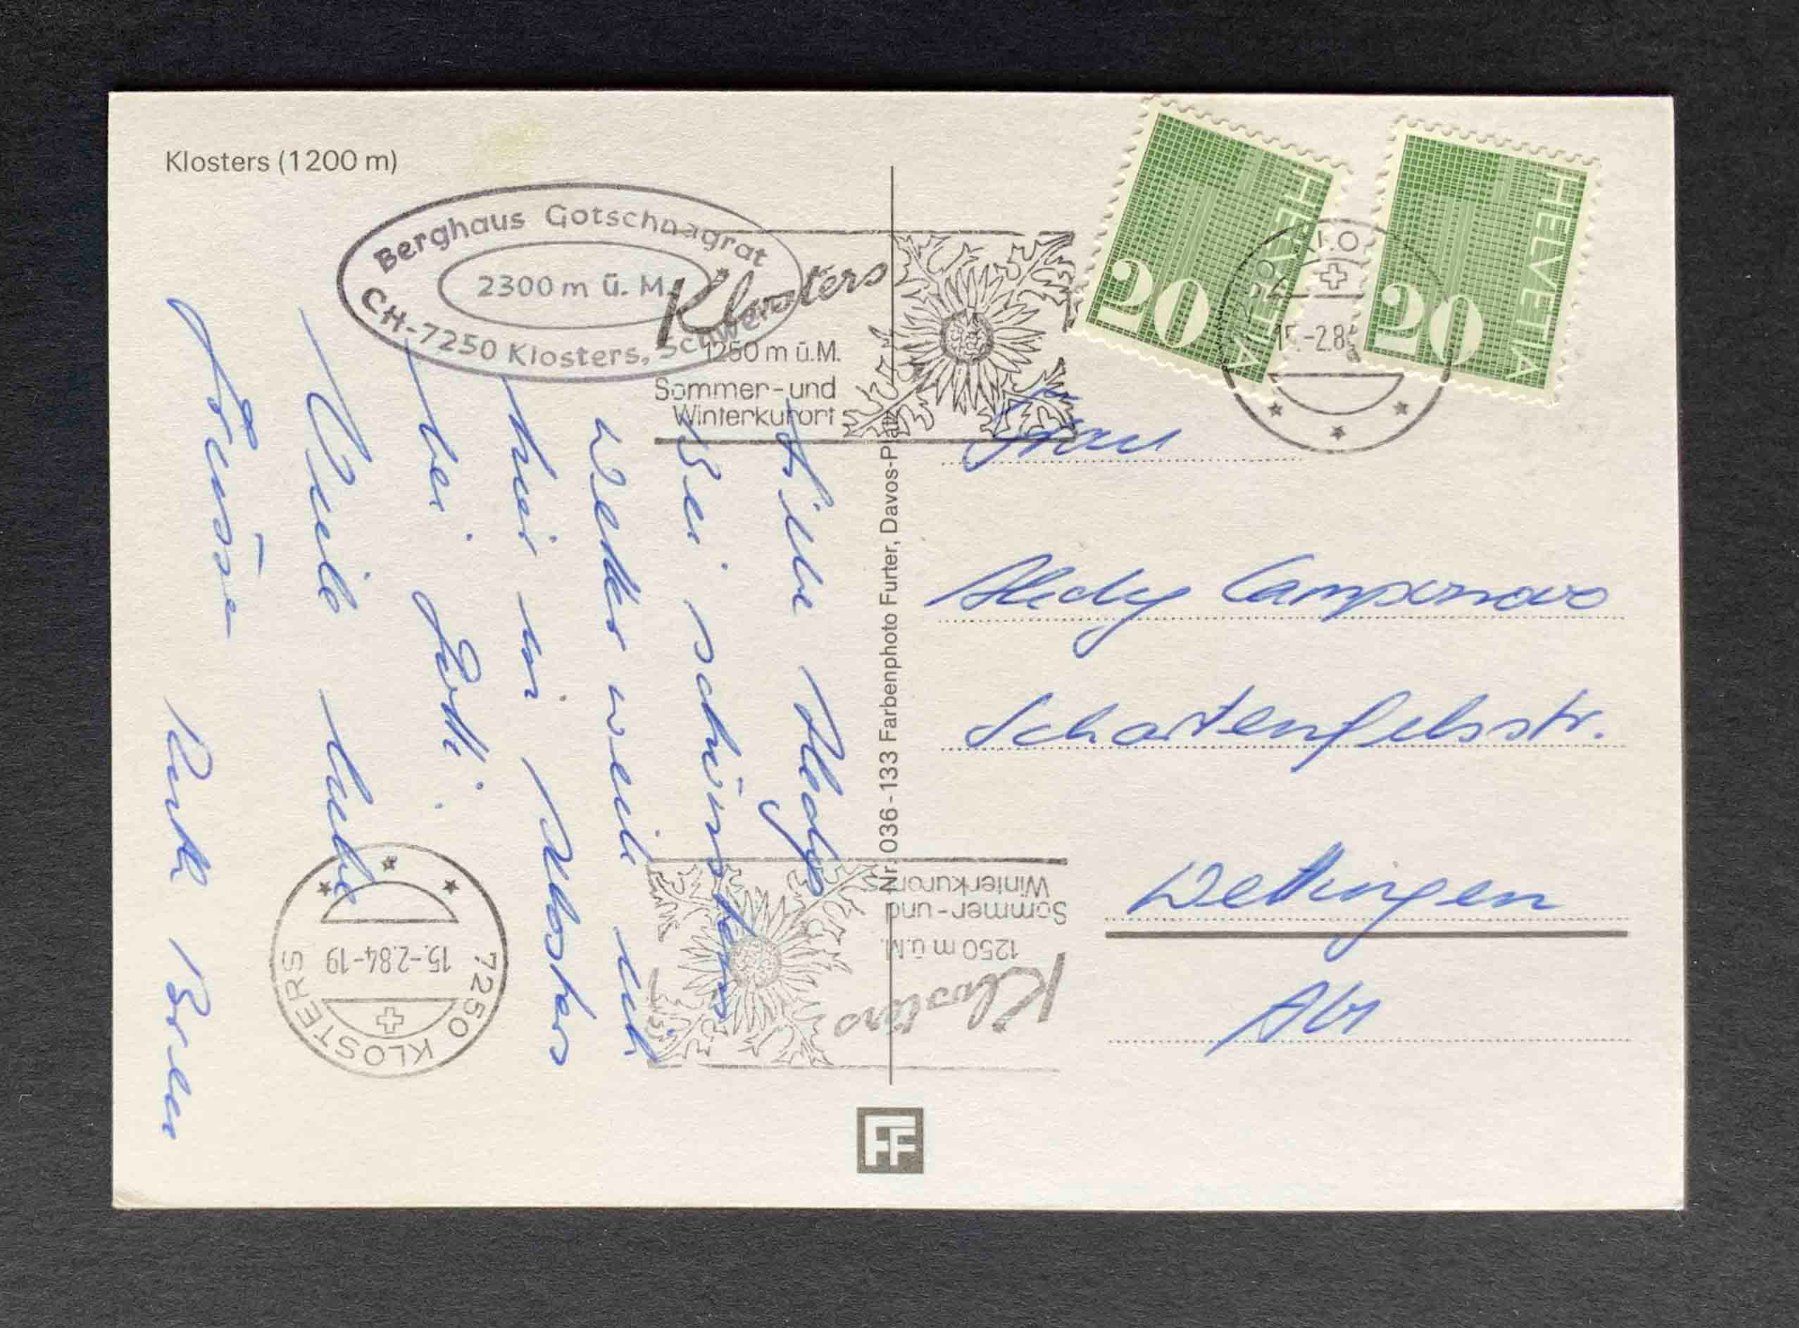 Klosters (1200 m)
Berghaus Gotschnagrat
2300 m ü. M.
CH-7250 Klosters, Schweiz
Klosters
1250 m ü.M.
Sommer-und
Winterkurort
HELVETIA
20
HELVETIA
20
15.-2.84
Bei schönstem
Wetter weile ich
hier in Klosters
bei Gotti.
Viele liebe
Grüsse
Nr. 036-133 Farbenphoto Furter, Davos-Platz
Frau
Hedy Camponovo
Schartenfelsstr.
Wettingen
7250 KLOSTERS
15.-2.84-19
Klosters
1250 m ü.M.
Sommer-und
Winterkurort
FF